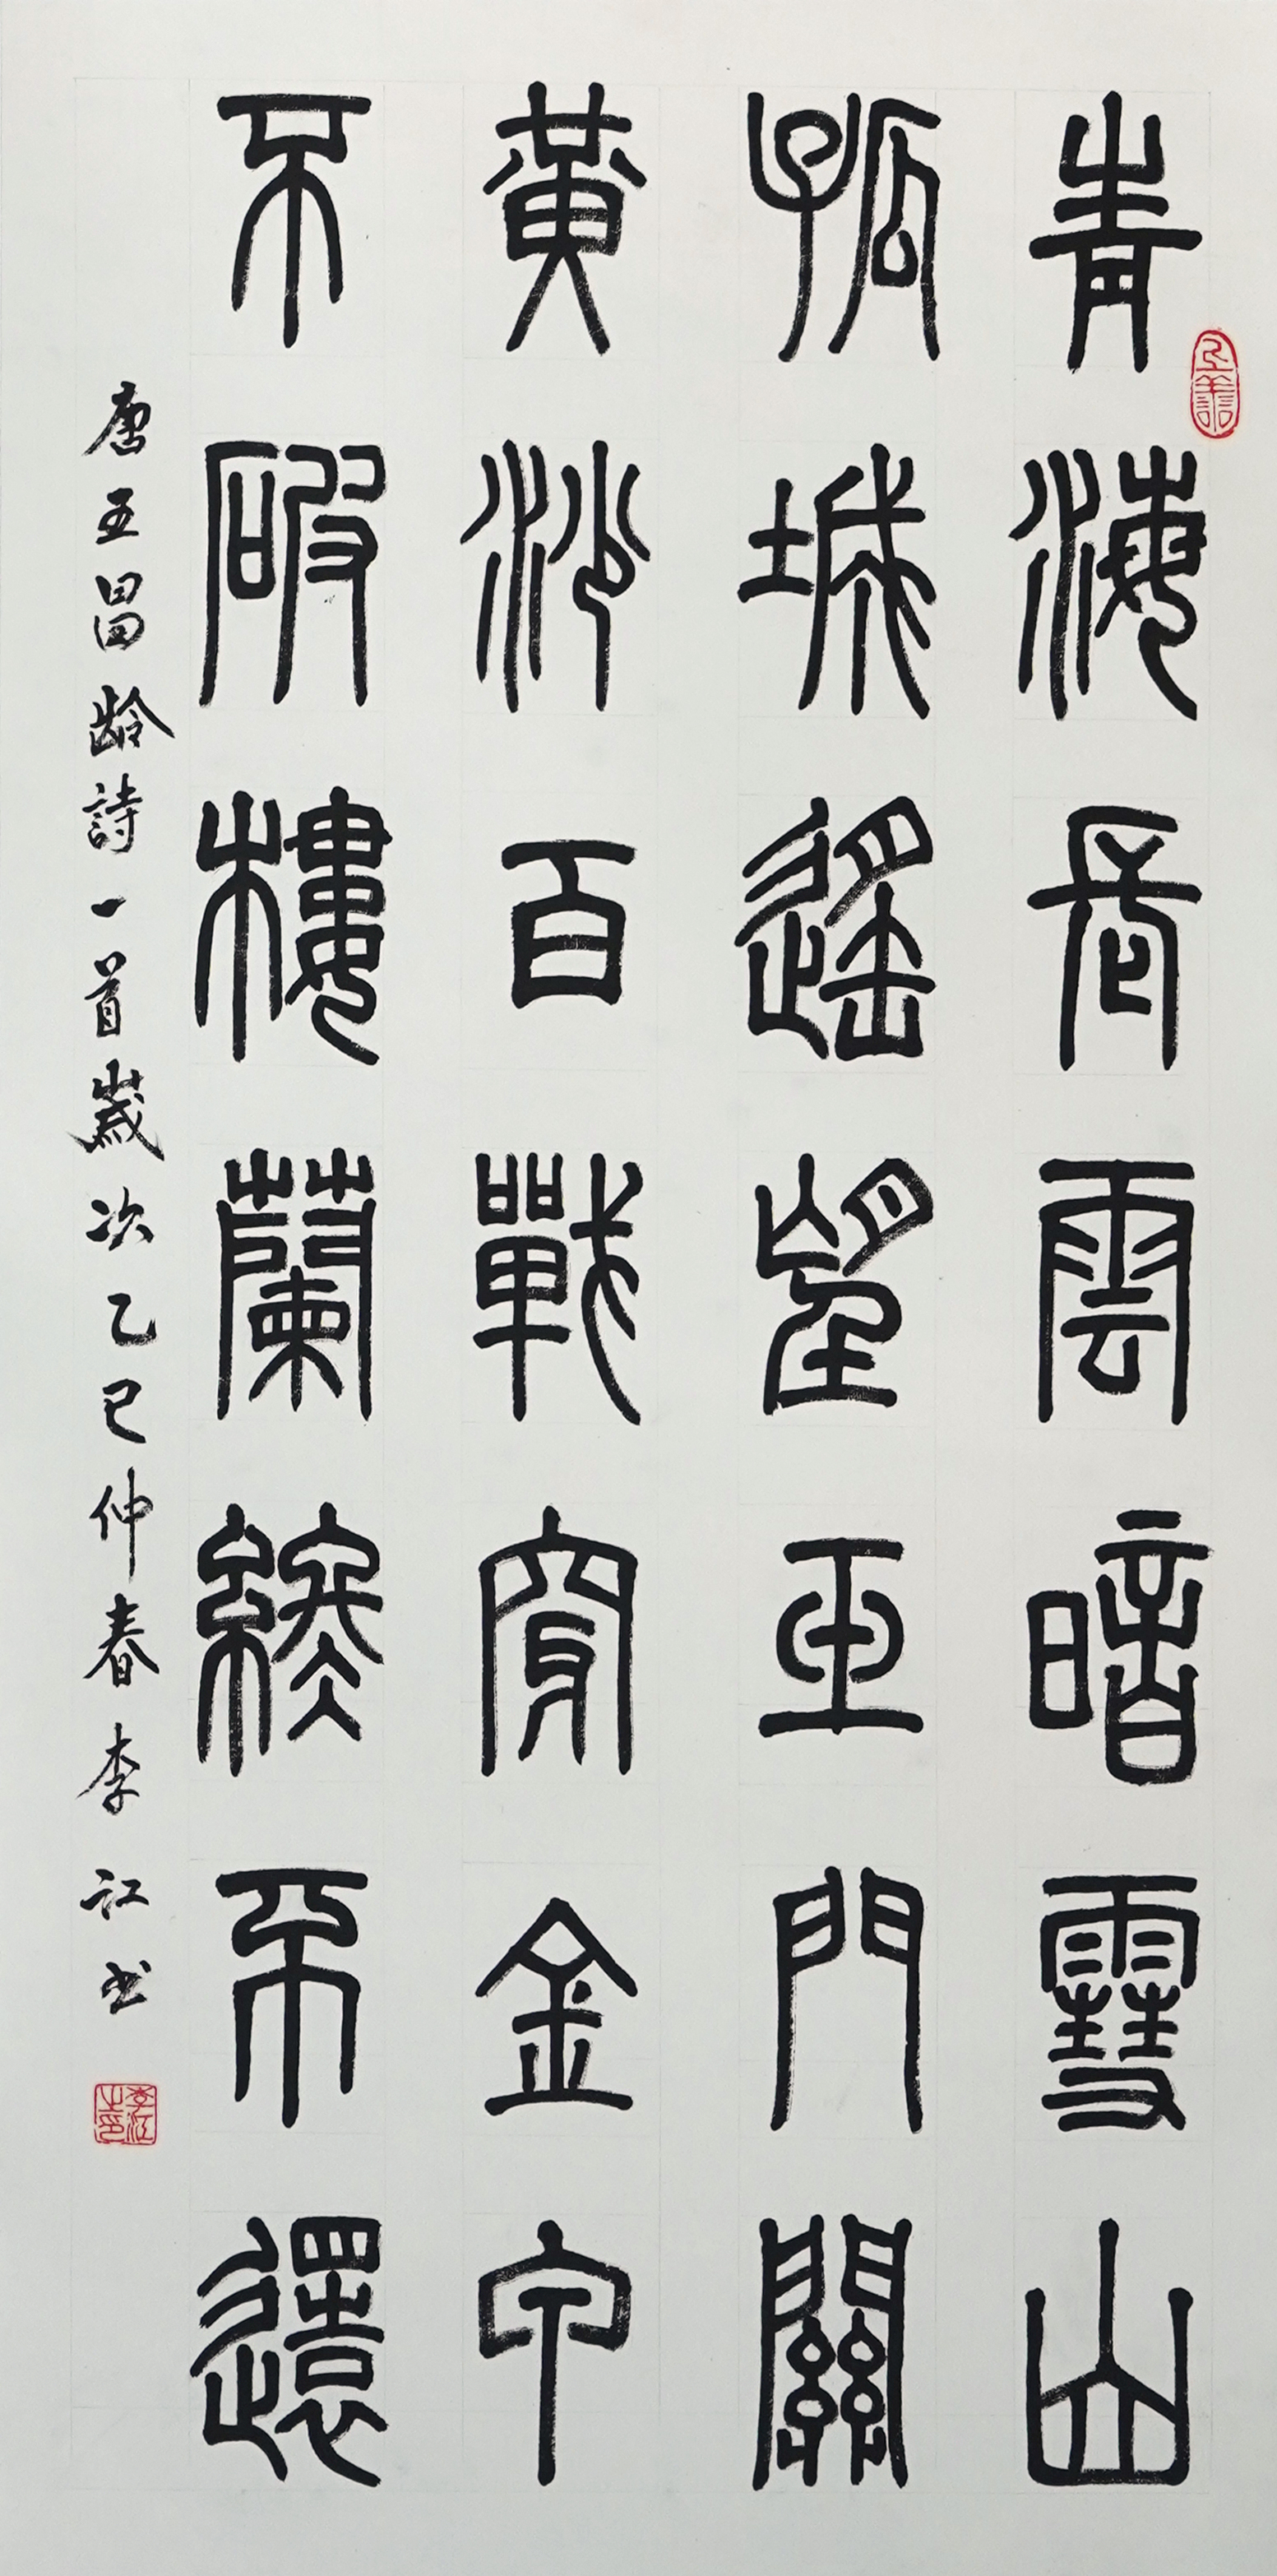 青海長雲暗雪山
孤城遙望玉門關
黃沙百戰穿金甲
不破樓蘭終不還
唐王昌齡詩一首歲次乙巳仲春李江书
李江之印